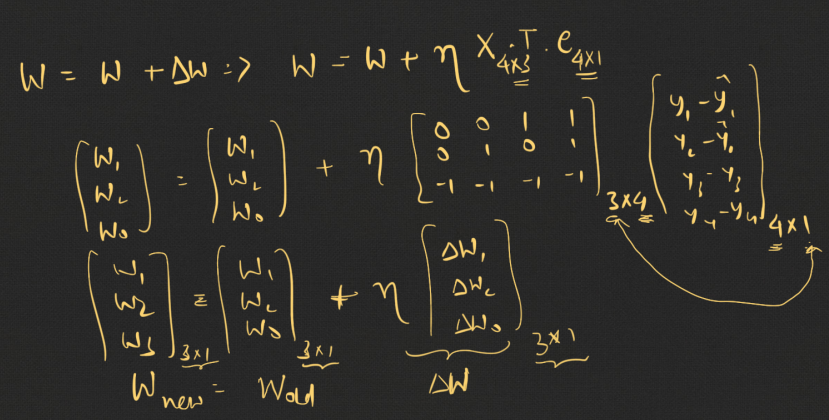 W = W + ΔW => W = W + η X₄ₓ₃.T . e₄ₓ₁
[W₁ W₂ W₀] = [W₁ W₂ W₀] + η [0 0 1 1; 0 1 0 1; -1 -1 -1 -1] 3×4 [y₁ - ŷ₁; y₂ - ŷ₀; y₃ - y₃; y₄ - y₄] 4×1
[W₁ W2 W3] 3×1 = [W₁ W₂ W₀] 3×1 + η [ΔW₁ ΔW₂ ΔW₀] 3×1
W new = W old ΔW